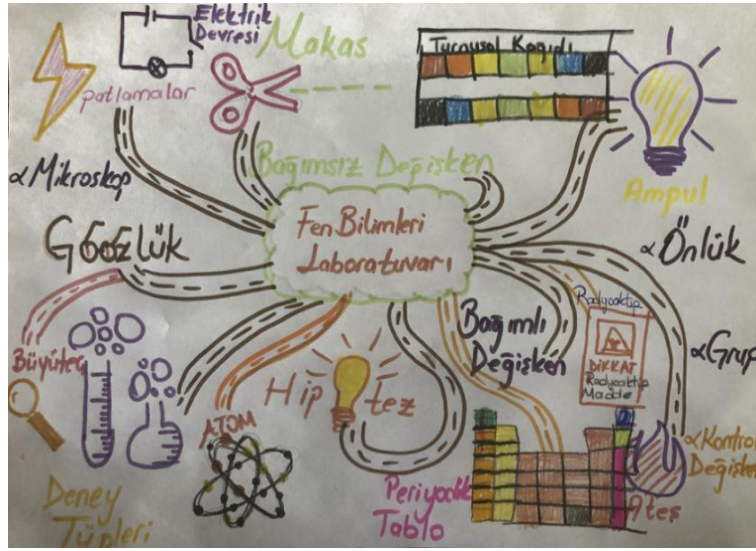 Elektrik
Devresi
Makas
Turnusol Kağıdı
patlamalar
∝Mikroskop
Bağımsız Değişken
Ampul
Gözlük
Fen Bilimleri
Laboratuvarı
∝Önlük
Büyüteç
Bağımlı
Değişken
Radyoaktip
DİKKAT
Radyoaktip
Madde
∝Grup
ATOM
Hip tez
Deney
Tüpleri
Periyodik
Tablo
∝Kontrol
Değişken
Ateş